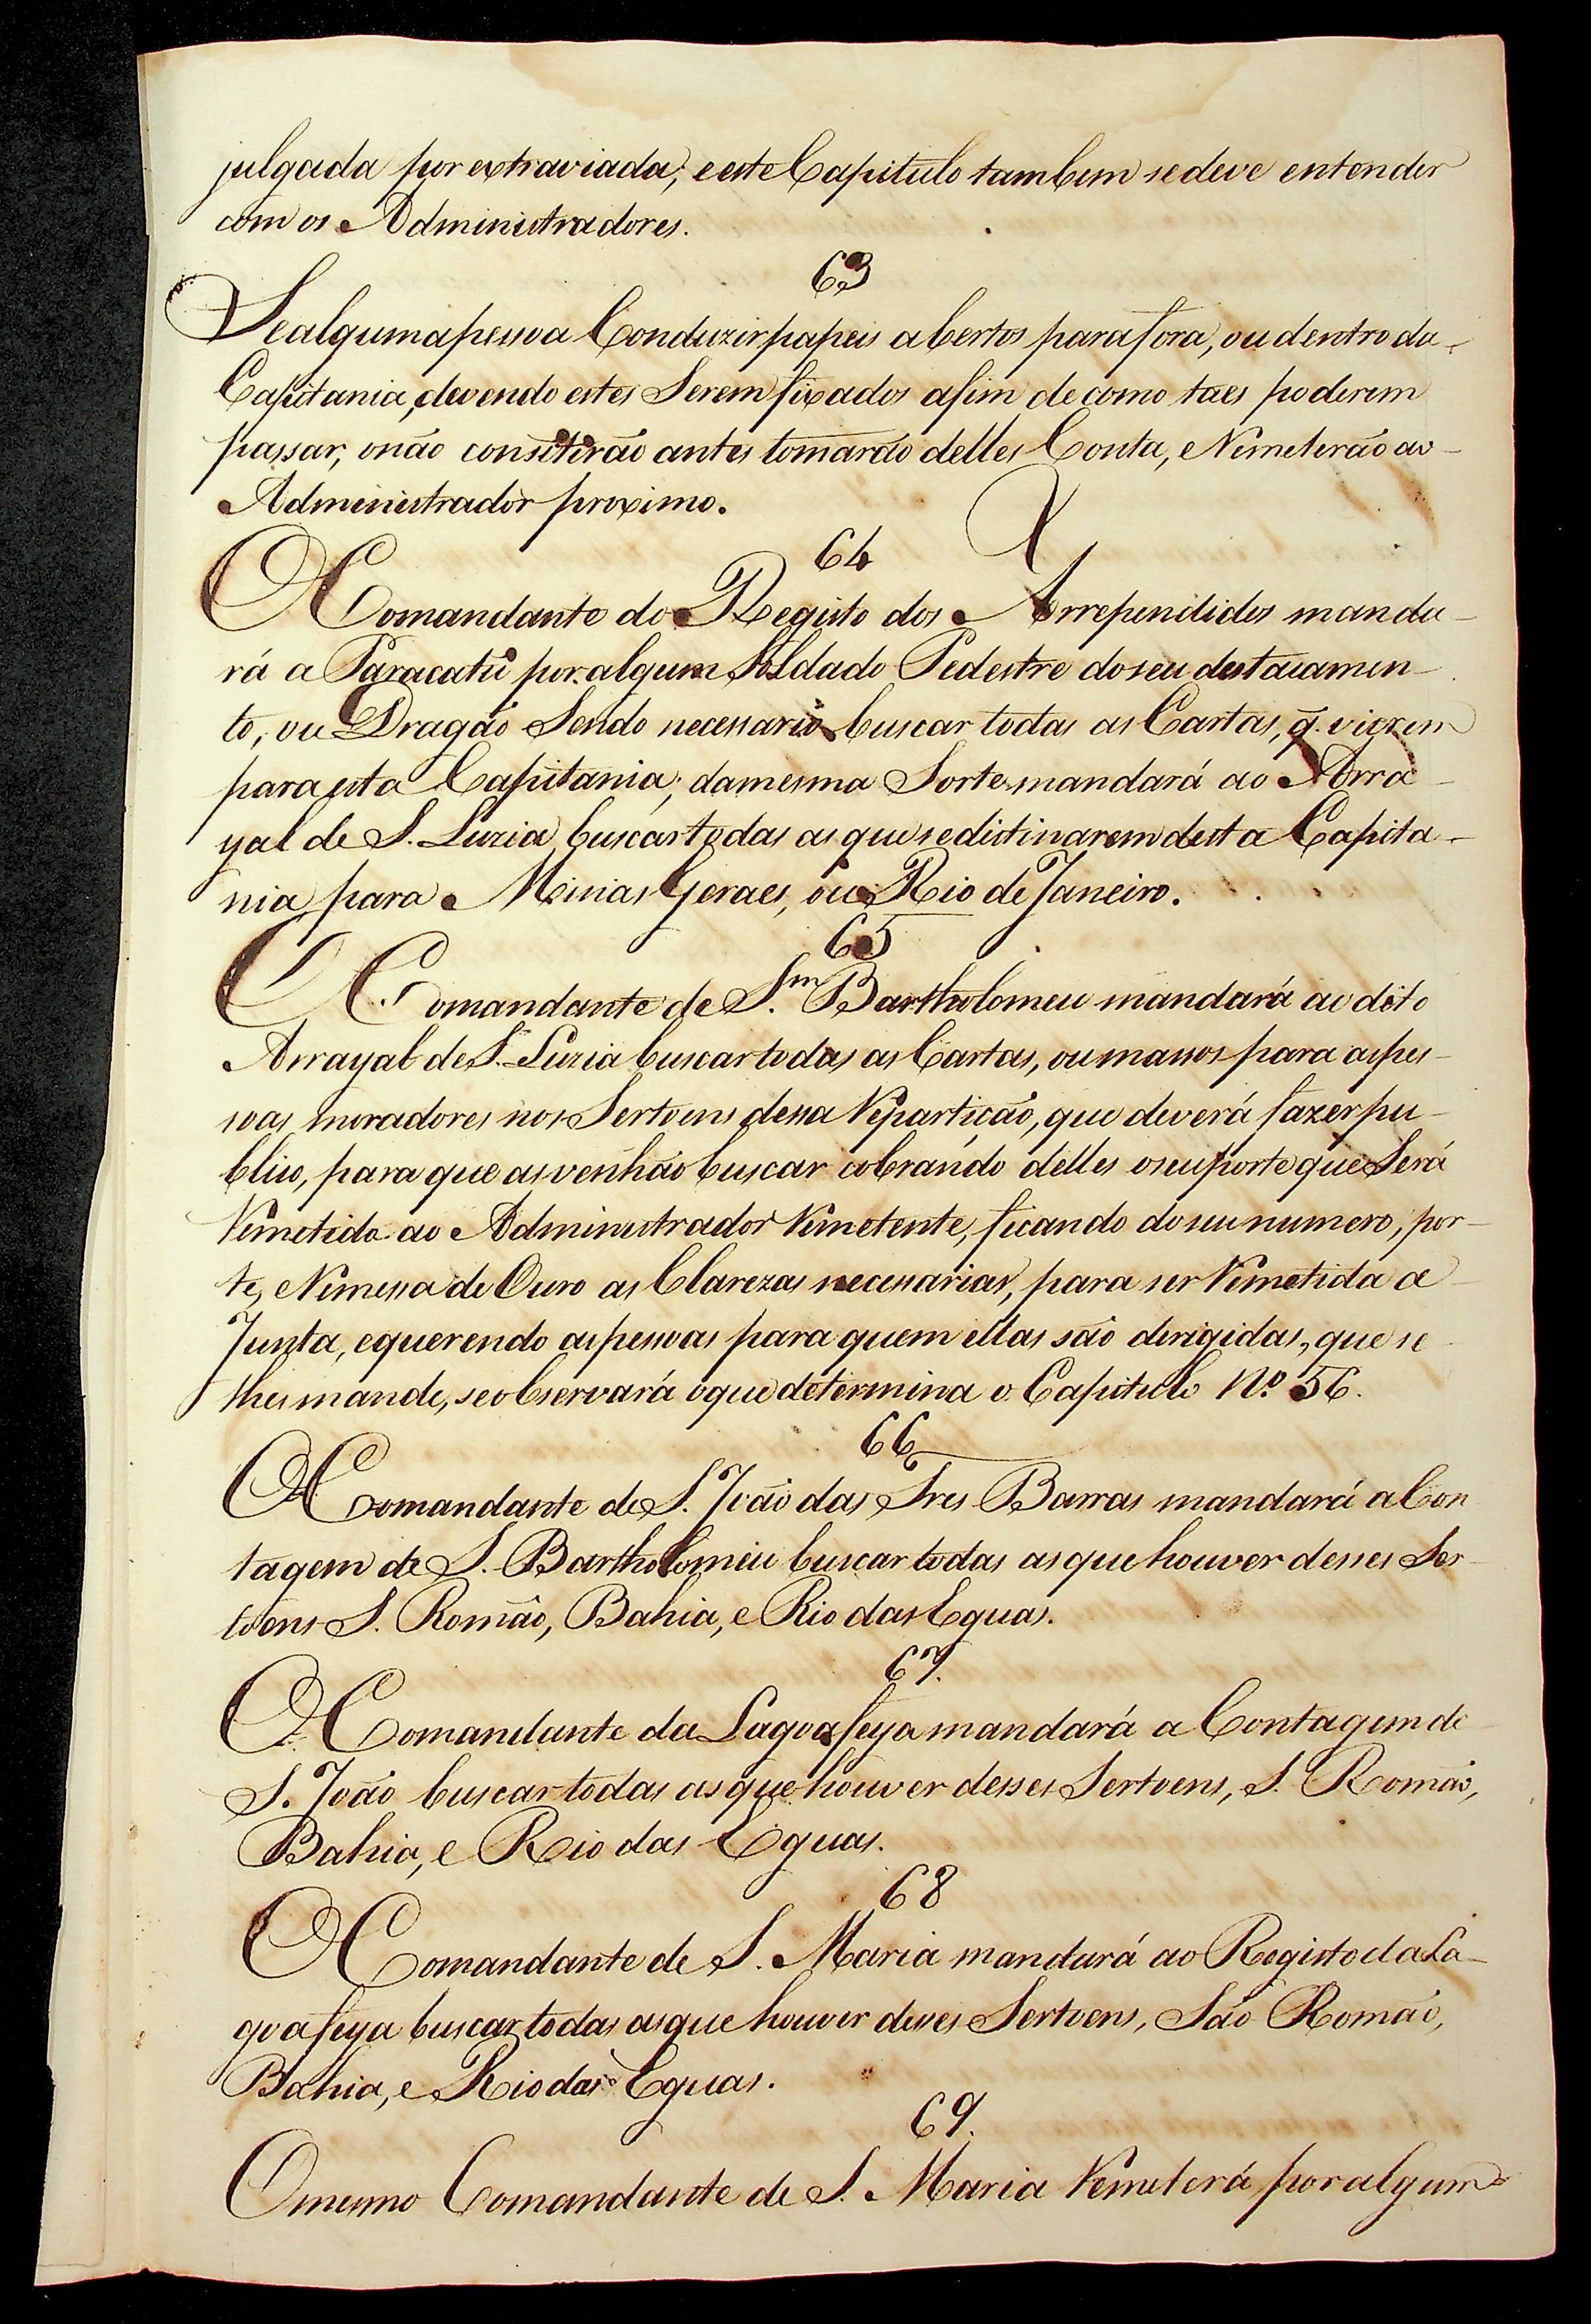 julgada por extraviada; e este Capitulo tambem se deve entender
com os Administradores.
63
Se alguma pessoa Conduzir papeis abertos para fora, ou dentro da
Capitania, devendo estes Serem fixados afim de como taes poderem
passar, o não consitirão antes tomarão delles Conta, e Remeterão ao
Administrador proximo.
64
O Comandante do Registo dos Arrependidos manda-
rá a Paracatú por algum Soldado Pedestre do seu destacamen-
to, ou Dragão Sendo necessario buscar todas as Cartas, q. vierem
para esta Capitania; da mesma Sorte mandará ao Arra-
yal de S. Luzia buscar todas as que se distinarem desta Capita-
nia para Minas Geraes, ou Rio de Janeiro.
65
O Comandante de S.m Bartholomeu mandará ao dito
Arrayal de S. Luzia buscar todas as Cartas, ou massos para as pes-
soas moradores nos Sertoens dessa Repartição, que deverá fazer pu-
blico, para que as venhão buscar cobrando delles o seu porte que Será
Remetido ao Administrador Remetente, ficando do seu numero, por-
te, e Remessa de Ouro as Clarezas necessarias, para ser Remetida a
Junta, e querendo as pessoas para quem ellas são dirigidas, que se
lhes mande, se observará o que determina o Capitulo Nº 56.
66
O Comandante de S. João das Tres Barras mandará a Con
tagem de S. Bartholomeu buscar todas as que houver desses Ser-
toens S. Romão, Bahia, e Rio das Eguas.
67.
O Comandante da Lagoa feya mandará a Contagem de
S. João buscar todas as que houver desses Sertoens, S. Romão,
Bahia, e Rio das Eguas.
68
O Comandante de S. Maria mandará ao Registo da La-
goa feya buscar todas as que houver desses Sertoens, São Romão,
Bahia, e Rio das Eguas.
69.
O mesmo Comandante de S. Maria Remeterá por algum